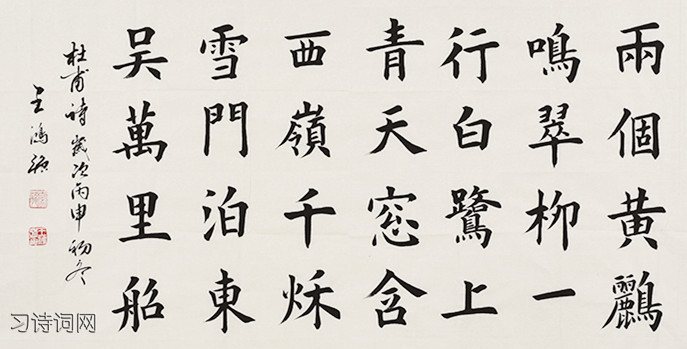 兩個黃鸝
鳴翠柳一
行白鷺上
青天窓含
西嶺千秌
雪門泊東
吳萬里船
杜甫詩歲次丙申初冬
王鴻
习诗词网